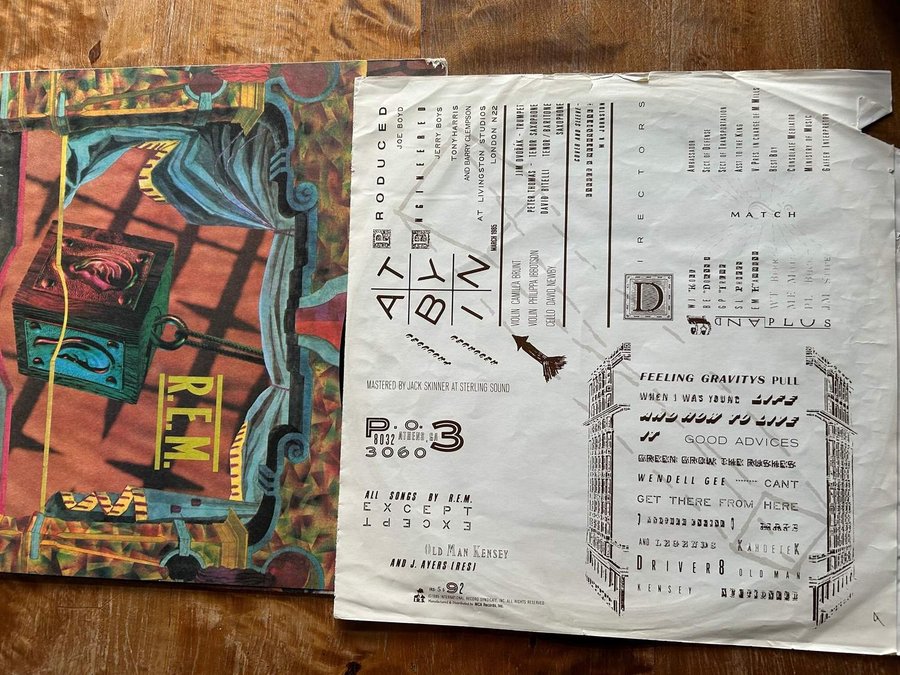 R.E.M.
PRODUCED
JOE BOYD
ENGINEERED
JERRY BOYS
TONY HARRIS
AND BARRY CLEMPSON
AT LIVINGSTON STUDIOS
LONDON N22
MARCH 1985
AT
BY
IN
VIOLIN CAMILLA BRUNT
VIOLIN PHILIPPA IBBOTSON
CELLO DAVID NEWBY
JIM DVORAK - TRUMPET
PETER THOMAS - TENOR SAXOPHONE
DAVID BITELLI - TENOR / BARITONE
SAXOPHONE
M K JOHNSTON
MASTERED BY JACK SKINNER AT STERLING SOUND
P.O.
8032 ATHENS, GA
30603
ALL SONGS BY R.E.M.
EXCEPT
EXCEPT
OLD MAN KENSEY
AND J. AYERS (RES)
IRS 5592
©1985 INTERNATIONAL RECORD SYNDICATE, INC. ALL RIGHTS RESERVED
Manufactured & Distributed by MCA Records, Inc.
DIRECTORS
AMBASSADOR
SECT OF DEFENSE
SECT OF TRANSPORTATION
ASST TO THE KING
V PRES IN CHARGE OF M MILLS
BUSY BOY
CONSULATE MEDIATOR
MINISTRY OF MUSIC
MATCH
AND PLUS
FEELING GRAVITYS PULL
WHEN I WAS YOUNG LIFE
AND HOW TO LIVE
IT GOOD ADVICES
GREEN GROW THE RUSHES
WENDELL GEE CANT
GET THERE FROM HERE
ANOTHER ENGINE MAPS
AND LEGENDS KAHOETEK
DRIVER 8 OLD MAN
KENSEY AUCTIONEER